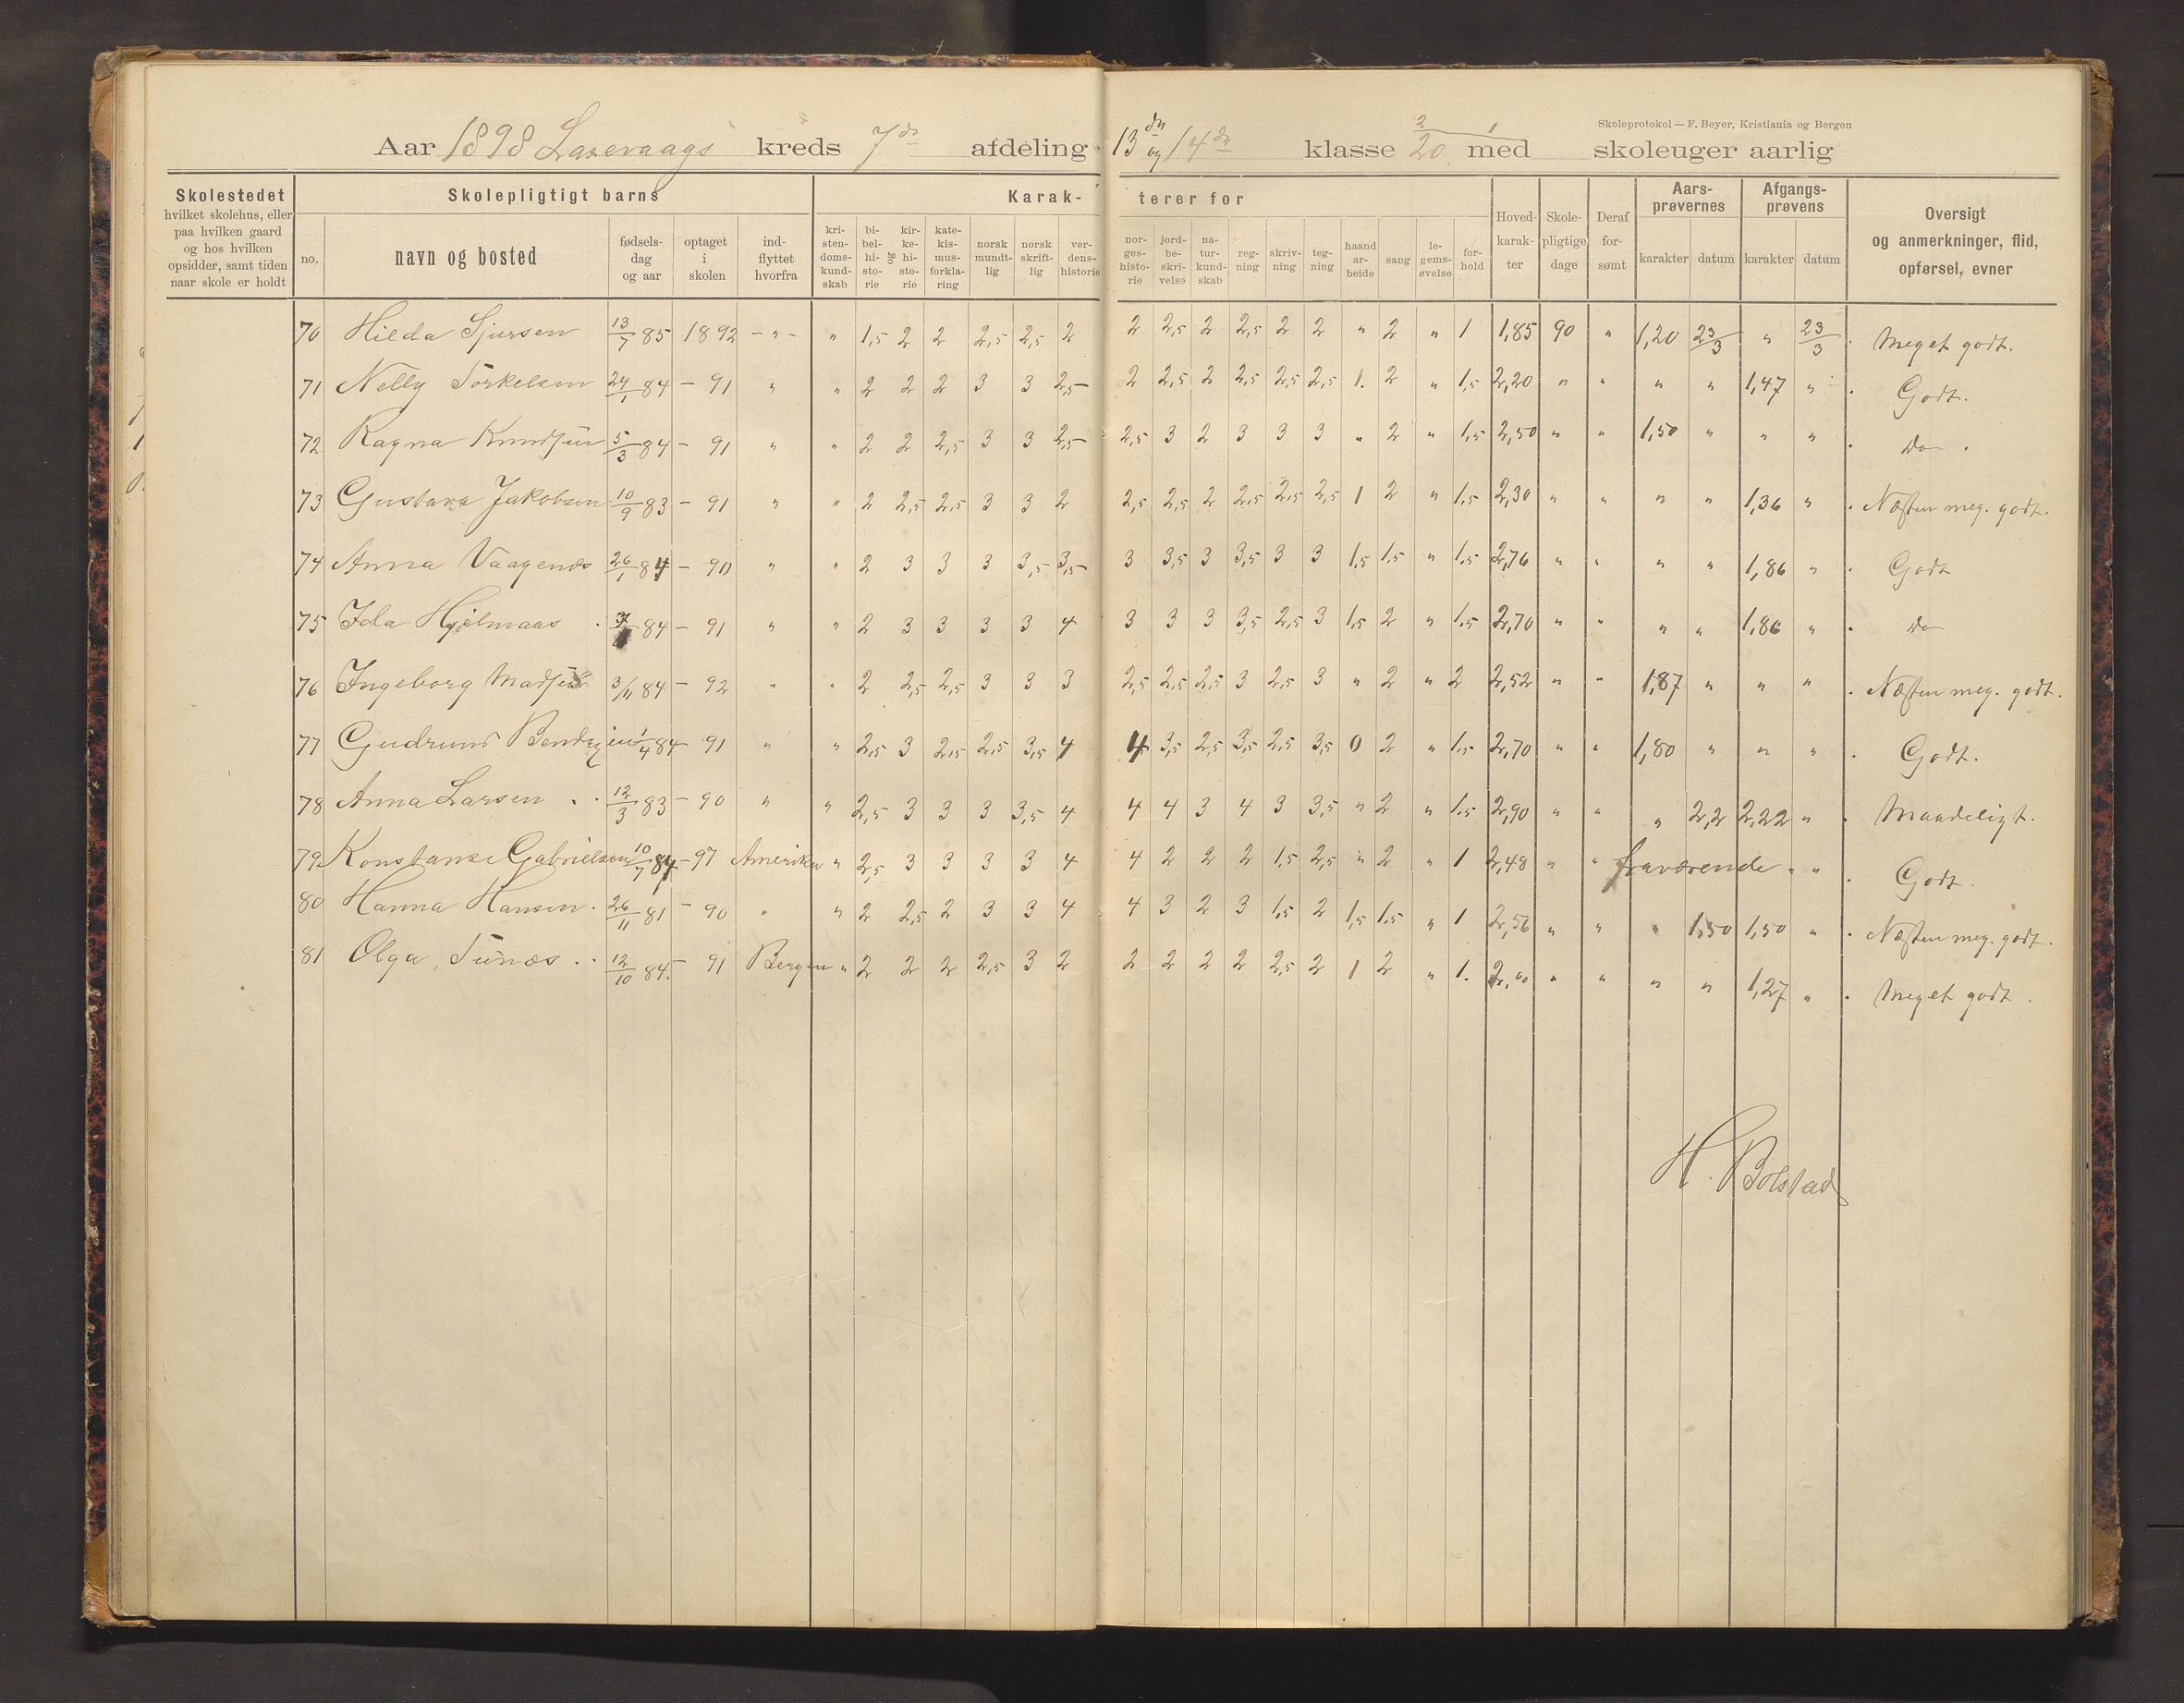 Skoleprotokol — F. Beyer, Kristiania og Bergen
Aar 1898 Laxevaags kreds 7de afdeling 13de og 14de klasse 20 med skoleuger aarlig
Skolestedet hvilket skolehus, eller paa hvilken gaard og hos hvilken opsidder, samt tiden naar skole er holdt
Skolepligtigt barns
no. navn og bosted fødsels-dag og aar optaget i skolen ind-flyttet hvorfra
Karak-terer for
kri-sten-doms-kund-skab bi-bel-hi-sto-rie og kir-ke-hi-sto-rie kate-kis-mus-forkla-ring norsk mundt-lig norsk skrift-lig ver-dens-historie
nor-ges-histo-rie jord-be-skri-velse na-tur-kund-skab reg-ning skriv-ning teg-ning haand ar-beide sang le-gems-øvelse for-hold
Hoved-karak-ter Skole-pligtige dage Deraf for-sømt Aars-prøvernes karakter datum Afgangs-prøvens karakter datum
Oversigt og anmerkninger, flid, opførsel, evner
70 Hilda Sjursen 13/7 85 1892 -"- " 1,5 2 2 2,5 2,5 2 2 2,5 2 2,5 2 2 " 2 " 1 1,85 90 " 1,20 23/3 " 23/3 Meget godt.
71 Nelly Torkelsen 24/1 84 - 91 " " 2 2 2 3 3 2,5 2 2,5 2 2,5 2,5 2,5 1. 2 " 1,5 2,20 " " " " 1,47 " Godt.
72 Ragna Knudsen 5/3 84 - 91 " " 2 2 2,5 3 3 2,5 2,5 3 2 3 3 3 " 2 " 1,5 2,50 " " 1,50 " " " Do.
73 Gustava Jakobsen 10/9 83 - 91 " " 2 2,5 2,5 3 3 2 2,5 2,5 2 2,5 2,5 2,5 1 2 " 1,5 2,30 " " " " 1,36 " Næsten meg. godt.
74 Anna Vaagenes 26/1 84 - 90 " " 2 3 3 3 3,5 3,5 3 3,5 3 3,5 3 3 1,5 1,5 " 1,5 2,76 " " " " 1,86 " Godt
75 Ida Hjelmaas 84 - 91 " " 2 3 3 3 3 4 3 3 3 3,5 2,5 3 1,5 2 " 1,5 2,70 " " " " 1,86 " Do
76 Ingeborg Madsen 3/11 84 - 92 " " 2 2,5 2,5 3 3 3 2,5 2,5 2,5 3 2,5 3 " 2 " 2 2,52 " " 1,87 " " " Næsten meg. godt.
77 Gudrund Bendixen 1/4 84 - 91 " " 2,5 3 2,5 2,5 3,5 4 4 3,5 2,5 3,5 2,5 3,5 0 2 " 1,5 2,70 " " 1,80 " " " Godt.
78 Anna Larsen 12/3 83 - 90 " " 2,5 3 3 3 3,5 4 4 4 3 4 3 3,5 " 2 " 1,5 2,90 " " " 2,2 2,22 " Maadeligt.
79 Konstanse Gabrielsen 10/7 84 - 97 Amerika " 2,5 3 3 3 3 4 4 2 2 2 1,5 2,5 " 2 " 1 2,48 " " fraværende " " Godt.
80 Hanna Hansen 26/11 81 - 90 " " 2 2,5 2 3 3 4 4 3 2 3 1,5 2 1,5 1,5 " 1 2,56 " " " 1,50 1,50 " Næsten meg. godt.
81 Olga Tunæs 12/10 84. - 91 Bergen " 2 2 2 2,5 3 2 2 2 2 2 2,5 2 1 2 " 1. 2,00 " " " " 1,27 " Meget godt.
H. Bolstad